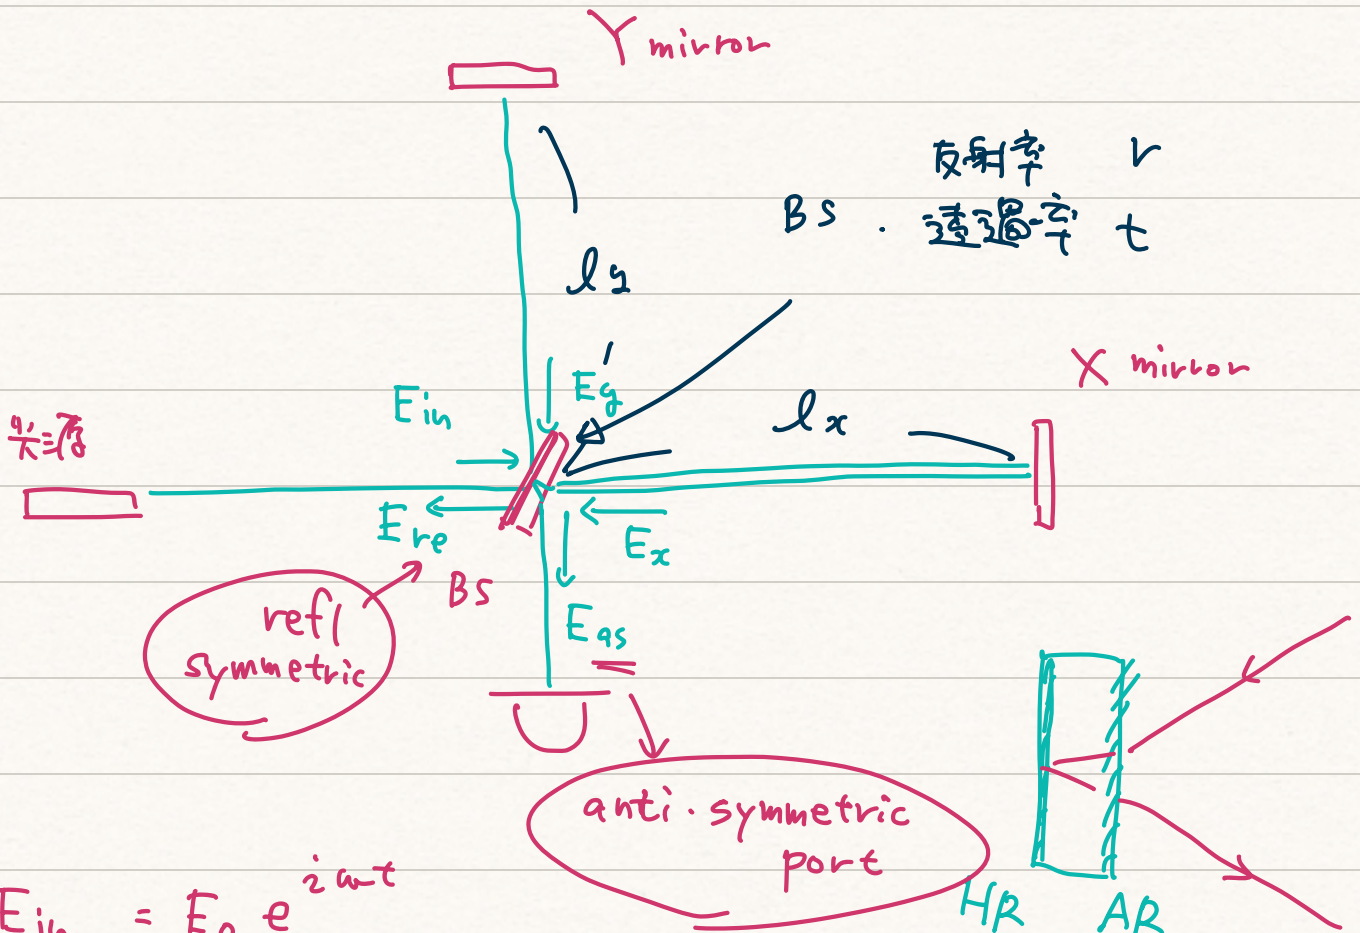 Y mirror
反射率 r
BS . 透過率 t
ly
X mirror
Ey'
Ein
lx
光源
Ere
Ex
BS
Eas
refl
symmetric
anti-symmetric
port
HR AR
Ein = E0 e^iωt